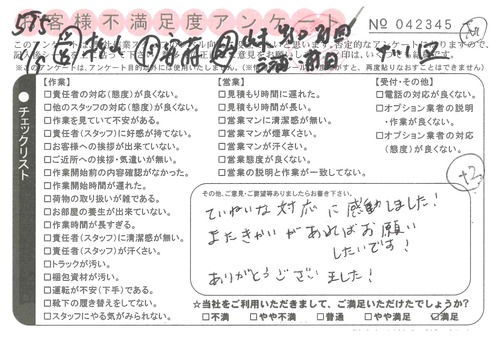 お客様不満足度アンケート
No 042345
【作業】
□責任者の対応(態度)が良くない。
□他のスタッフの対応(態度)が良くない。
□作業を見ていて不安がある。
□責任者(スタッフ)に好感が持てない。
□お客様への挨拶が出来ていない。
□ご近所への挨拶・気遣いが無い。
□作業開始前の内容確認がなかった。
□作業開始時間が遅れた。
□荷物の取り扱いが雑である。
□お部屋の養生が出来ていない。
□作業時間が長すぎる。
□責任者(スタッフ)に清潔感が無い。
□責任者(スタッフ)が汗くさい。
□トラックが汚い。
□梱包資材が汚い。
□運転が不安(下手)である。
□靴下の履き替えをしてない。
□スタッフにやる気がみられない。
【営業】
□見積もり時間に遅れた。
□見積もり時間が長い。
□営業マンに清潔感が無い。
□営業マンが煙草くさい。
□営業マンが汗くさい。
□営業態度が良くない。
□営業の説明と作業が一致してない。
【受付・その他】
□電話の対応が良くない。
□オプション業者の説明
・作業が良くない。
□オプション業者の対応
(態度)が良くない。
チェックリスト
その他、ご意見・ご要望等ありましたらお書き下さい。
ていねいな対応に感動しました!
またきかいがあればお願い
したいです!
ありがとうございました!
+2
☆当社をご利用いただきまして、ご満足いただけたでしょうか?
□不満 □やや不満 □普通 □やや満足 ☑満足